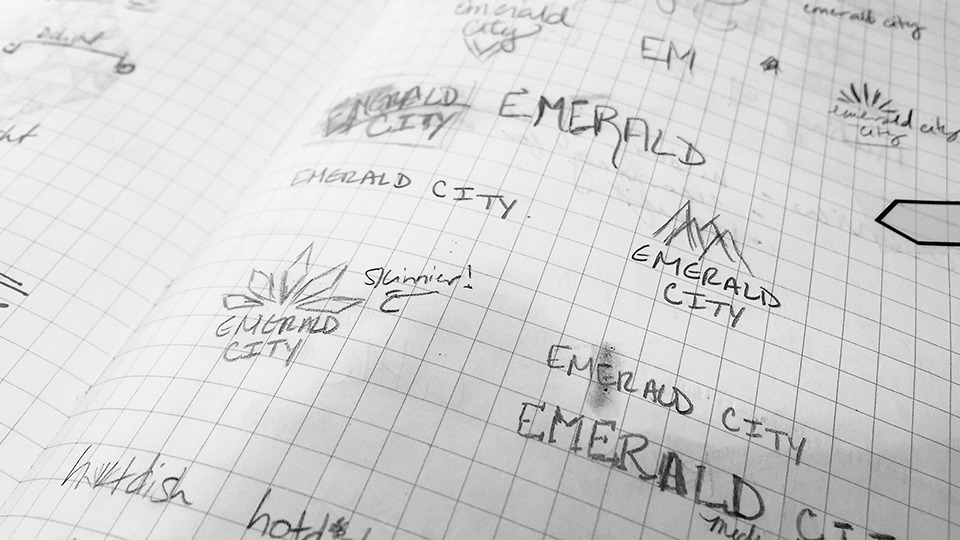 emerald
city
emerald city
EM
EMERALD
CITY
EMERALD
emerald city
city
EMERALD CITY
EMERALD
CITY
skinnier!
EMERALD
CITY
EMERALD CITY
EMERALD CI
hotdish